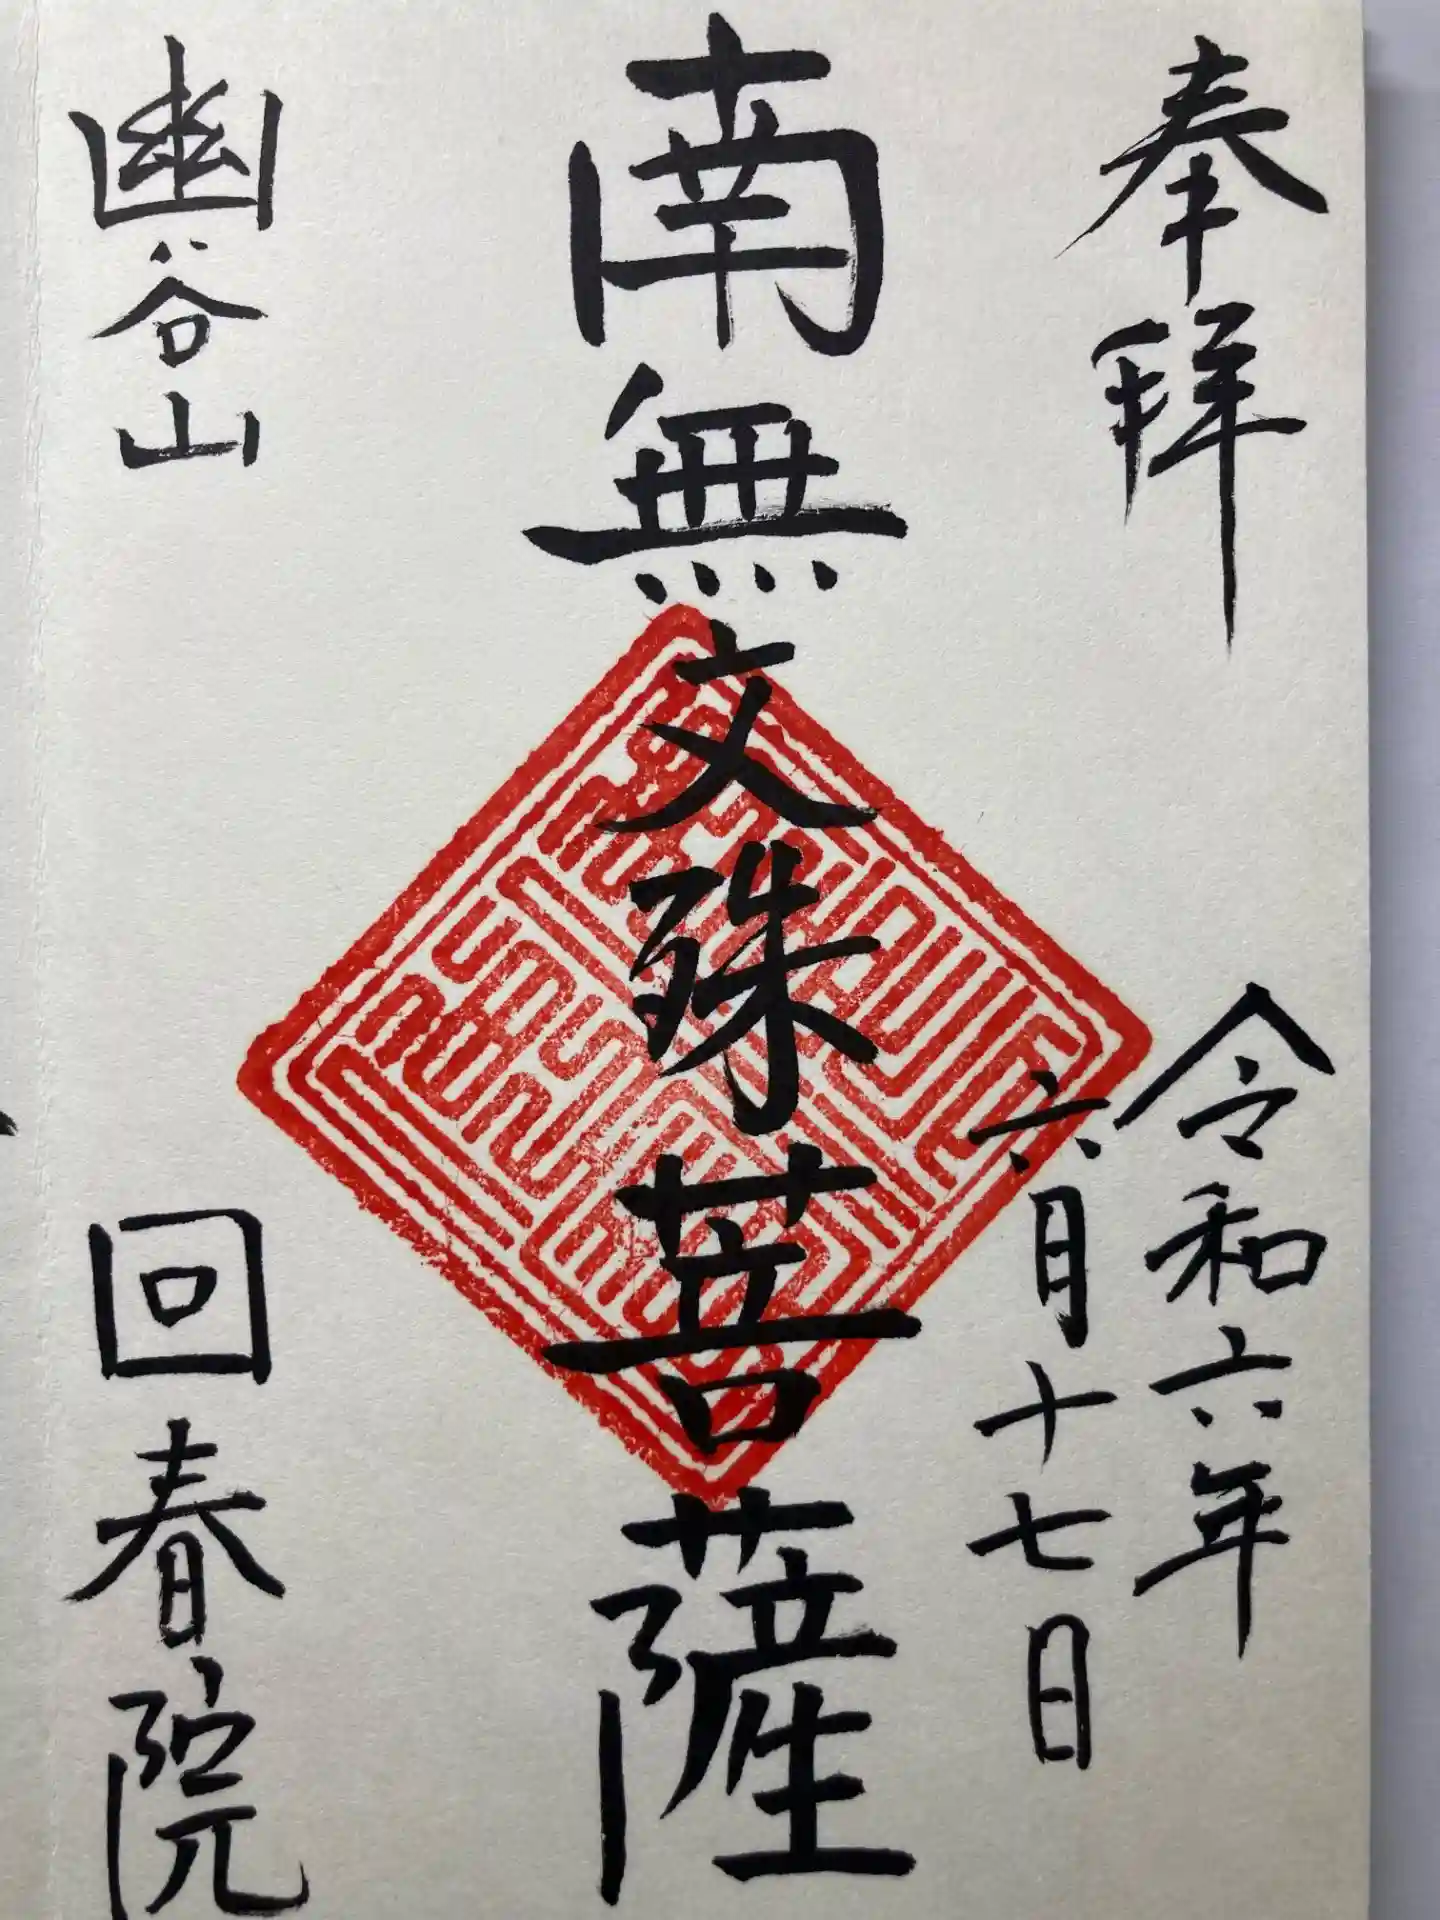 奉拝
令和六年
六月十七日
南無文殊菩薩
幽谷山
回春院